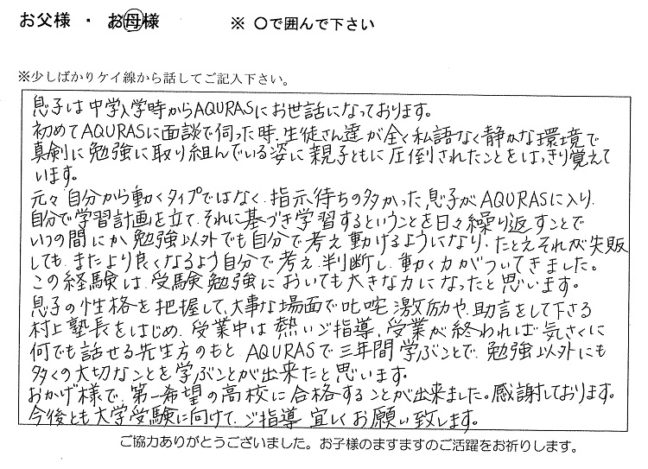 お父様 ・ お母様 ※ 〇で囲んで下さい
※少しばかりケイ線から話してご記入下さい。
息子は中学入学時からAQURASにお世話になっております。
初めてAQURASに面談で伺った時、生徒さん達が全く私語なく静かな環境で
真剣に勉強に取り組んでいる姿に親子ともに圧倒されたことをはっきり覚えて
います。
元々自分から動くタイプではなく、指示待ちの多かった息子がAQURASに入り、
自分で学習計画を立て、それに基づき学習するということを日々繰り返すことで
いつの間にか勉強以外でも自分で考え動けるようになり、たとえそれが失敗
しても、またより良くなるよう自分で考え、判断し、動く力がついてきました。
この経験は、受験勉強においても大きな力になったと思います。
息子の性格を把握して、大事な場面で叱咤激励や、助言をして下さる
村上塾長をはじめ、授業中は熱いご指導、授業が終われば気さくに
何でも話せる先生方のもとAQURASで三年間学ぶことで、勉強以外にも
多くの大切なことを学ぶことが出来たと思います。
おかげ様で、第一希望の高校に合格することが出来ました。感謝しております。
今後とも大学受験に向けて、ご指導宜しくお願い致します。
ご協力ありがとうございました。お子様のますますのご活躍をお祈りします。